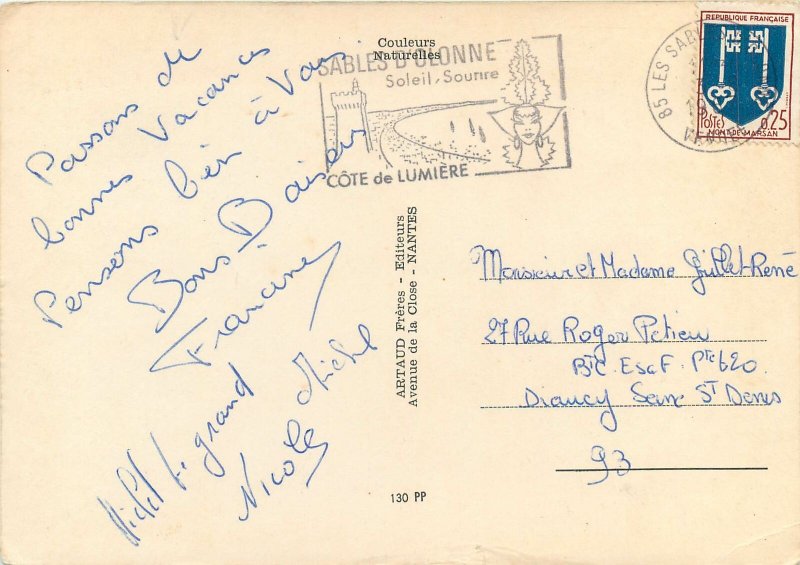 Couleurs
Naturelles
SABLES D'OLONNE
Soleil, Sourire
CÔTE de LUMIÈRE
85 LES SABLES
REPUBLIQUE FRANÇAISE
POSTES 0,25
MONT-DE-MARSAN
Passons de
bonnes Vacances
Pensons bien à Vous.
Bons Baisers
Francine
Michel
Michel Legrand
Nicole
ARTAUD Frères - Editeurs
Avenue de la Close - NANTES
Monsieur et Madame Guillet René
27 Rue Roger
Bt C. Esc F. Pte 620
Seine St Denis
93
130 PP